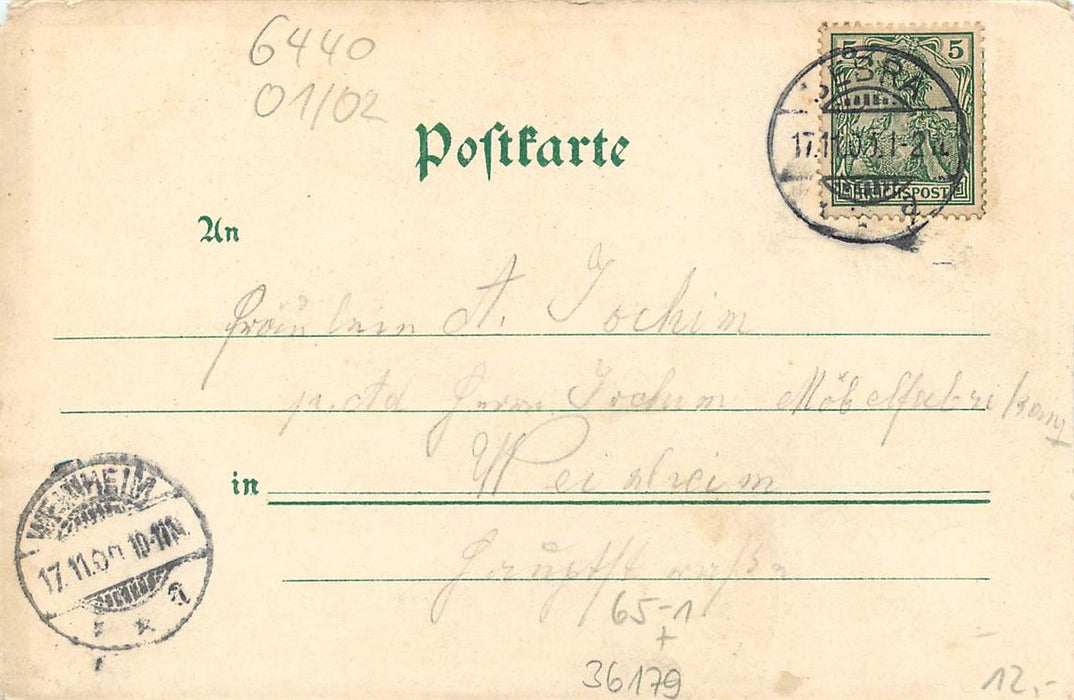 6440
01/02
Postkarte
5 5
BEBRA
17.11.00.1-2N.
REICHSPOST
a
An
Fräulein A. Jochim
Herrn Jochim Möbelfabrikant
in Weinheim
WEINHEIM
17.11.00 10-11N
a
Hauptstraße
65-1
+
36179
12.-